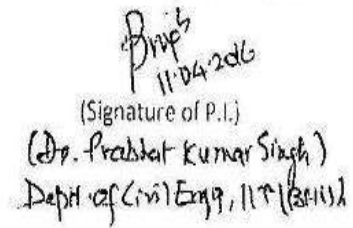 11.04.2016
(Signature of P.I.)
(Dr. Prabhat Kumar Singh)
Deptt of Civil Engg, IIT (BHU)